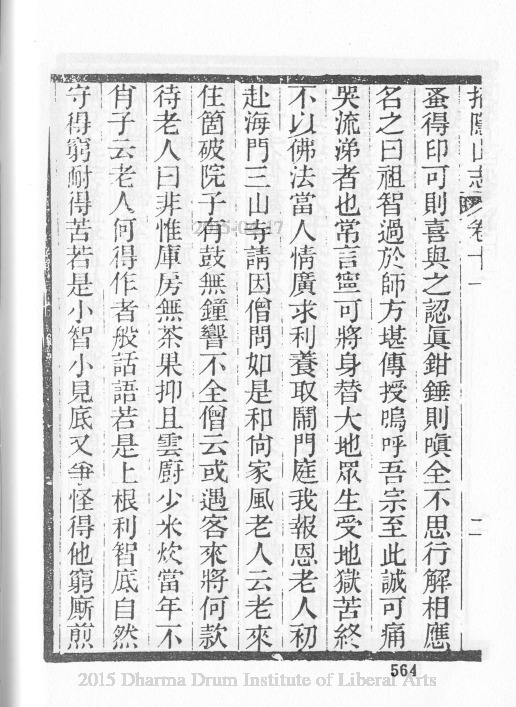 招隱山志 卷十一 二
蚤得印可則喜與之認眞鉗錘則嗔全不思行解相應
名之曰祖智過於師方堪傳授嗚呼吾宗至此誠可痛
哭流涕者也常言寧可將身替大地眾生受地獄苦終
不以佛法當人情廣求利養取鬧門庭我報恩老人初
赴海門三山寺請因僧問如是和尙家風老人云老來
住箇破院子有鼓無鐘響不全僧云或遇客來將何款
待老人曰非惟庫房無茶果抑且雲廚少米炊當年不
肖子云老人何得作者般話語若是上根利智底自然
守得窮耐得苦若是小智小見底又爭怪得他窮廝煎
564
2015 Dharma Drum Institute of Liberal Arts